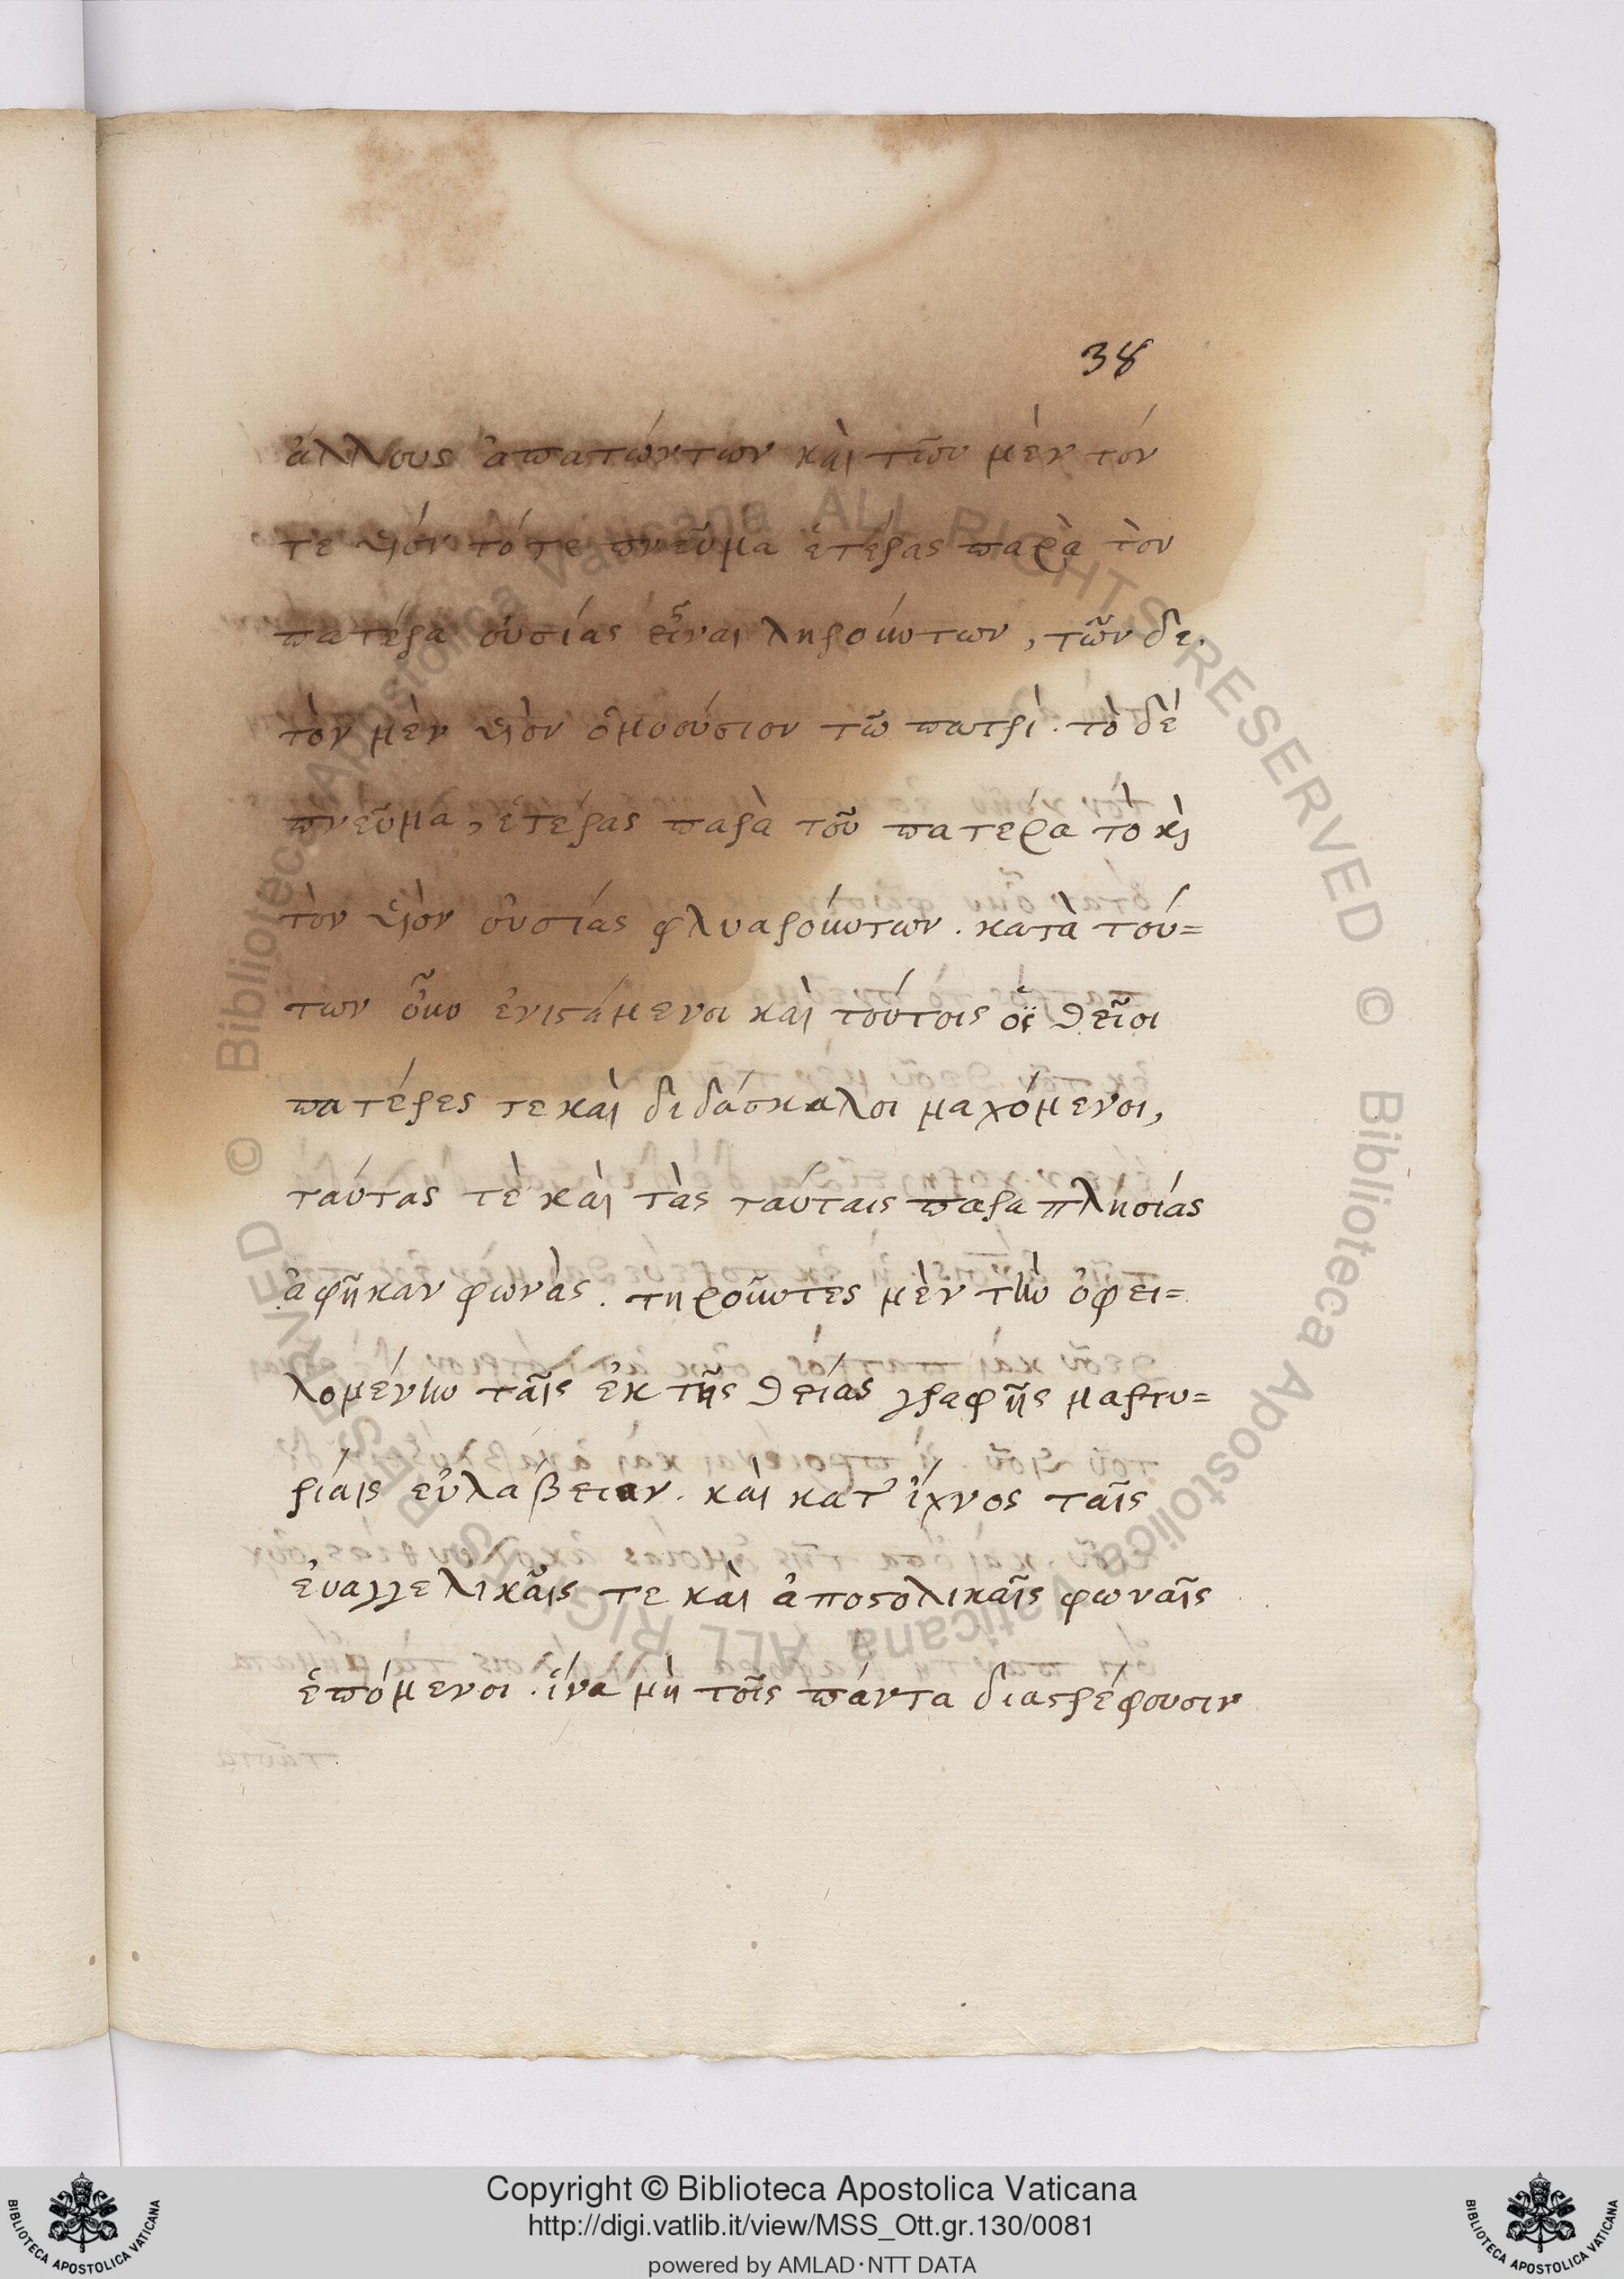 38
ἄλλους ἀπατώντων καὶ τῶν μὲν τόν
τε υἱόν τό τε πνεῦμα ἑτέρας παρὰ τὸν
πατέρα οὐσίας εἶναι ληρούντων, τῶν δε
τὸν μὲν υἱὸν ὁμοούσιον τῶ πατρὶ. τὸ δὲ
πνεῦμα, ἑτέρας παρὰ τοῦ πατερα το κὶ
τὸν υἱὸν οὐσίας φλυαρούντων. κατὰ τού=
των οὖν ἐνιστάμενοι καὶ τούτοις οἱ θεῖοι
πατέρες τε καὶ διδάσκαλοι μαχόμενοι,
ταύτας τὲ καὶ τὰς ταύταις παραπλησίας
ἀφῆκαν φωνὰς. τηροῦντες μὲν τὴν ὀφει=
λομένην ταῖς ἐκ τῆς θείας γραφῆς μαρτυ=
ρίαις εὐλάβειαν. καὶ κατ' ἴχνος ταῖς
ἐυαγγελικαῖς τε καὶ ἀποστολικαῖς φωναῖς
ἑπόμενοι. ἵνα μὴ τοῖς πάντα διαστρέφουσιν
© Biblioteca Apostolica Vaticana ALL RIGHTS RESERVED © Biblioteca Apostolica Vaticana ALL RIGHTS RESERVED
Copyright © Biblioteca Apostolica Vaticana
http://digi.vatlib.it/view/MSS_Ott.gr.130/0081
powered by AMLAD·NTT DATA
BIBLIOTECA APOSTOLICA VATICANA
BIBLIOTECA APOSTOLICA VATICANA